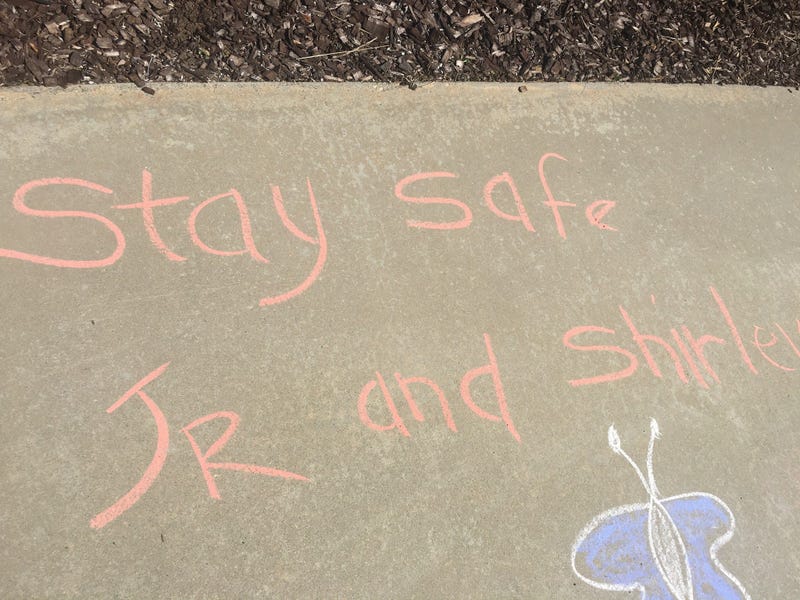 Stay safe
JR and Shirley